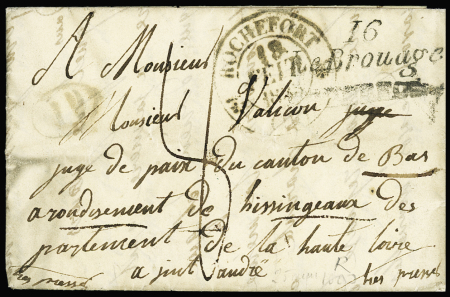 16
Le Brouage
ROCHEFORT
A Monsieur
Monsieur Valicon juge
juge de paix du canton de Bas
arondisement de hissingeaux des
partement de la haute loire
a saint andré
tres pressé tres pressé